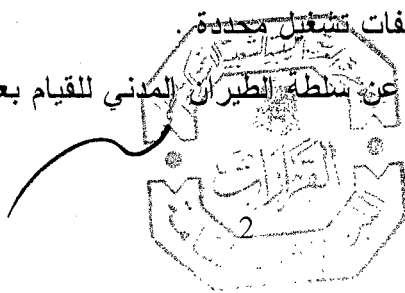 فات تشغيل محددة .
عن سلطة الطيران المدني للقيام بع
القرارات
2